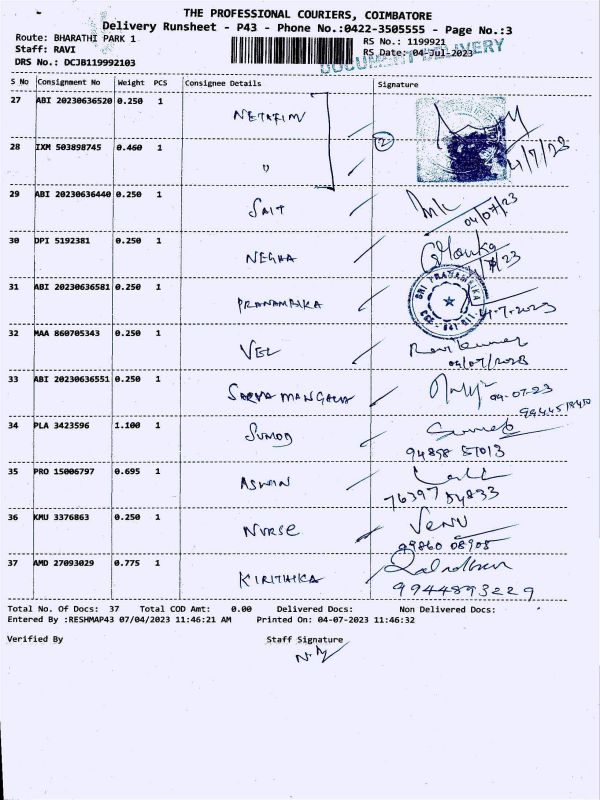 THE PROFESSIONAL COURIERS, COIMBATORE
Delivery Runsheet - P43 - Phone No.:0422-3505555 - Page No.:3
Route: BHARATHI PARK 1
RS No.: 1199921
Staff: RAVI
RS Date: 04-Jul-2023
DRS No.: DCJB119992103
DOCUMENT DELIVERY
S No Consignment No Weight PCS Consignee Details Signature
27 ABI 20230636520 0.250 1 NETAFIM
2
28 IXM 503898745 0.460 1 "
4/7/23
29 ABI 20230636440 0.250 1 SAIT
04/07/23
30 DPI 5192381 0.250 1 NEGHA
/7/23
31 ABI 20230636581 0.250 1 PRANAMBIKA
SRI PRANAMBIKA
4.7.2023
32 MAA 860705343 0.250 1 VEL Ravikumar
04/07/2023
33 ABI 20230636551 0.250 1 SARVA MANGALA
04-07-23
34 PLA 3423596 1.100 1 SUMOD
94898 51013
35 PRO 15006797 0.695 1 ASWIN
76397 54833
36 KMU 3376863 0.250 1 NURSE VENU
99860 08905
37 AMD 27093029 0.775 1 KIRITHIKA
9944893229
Total No. Of Docs: 37 Total COD Amt: 0.00 Delivered Docs: Non Delivered Docs:
Entered By :RESHMAP43 07/04/2023 11:46:21 AM Printed On: 04-07-2023 11:46:32
Verified By Staff Signature